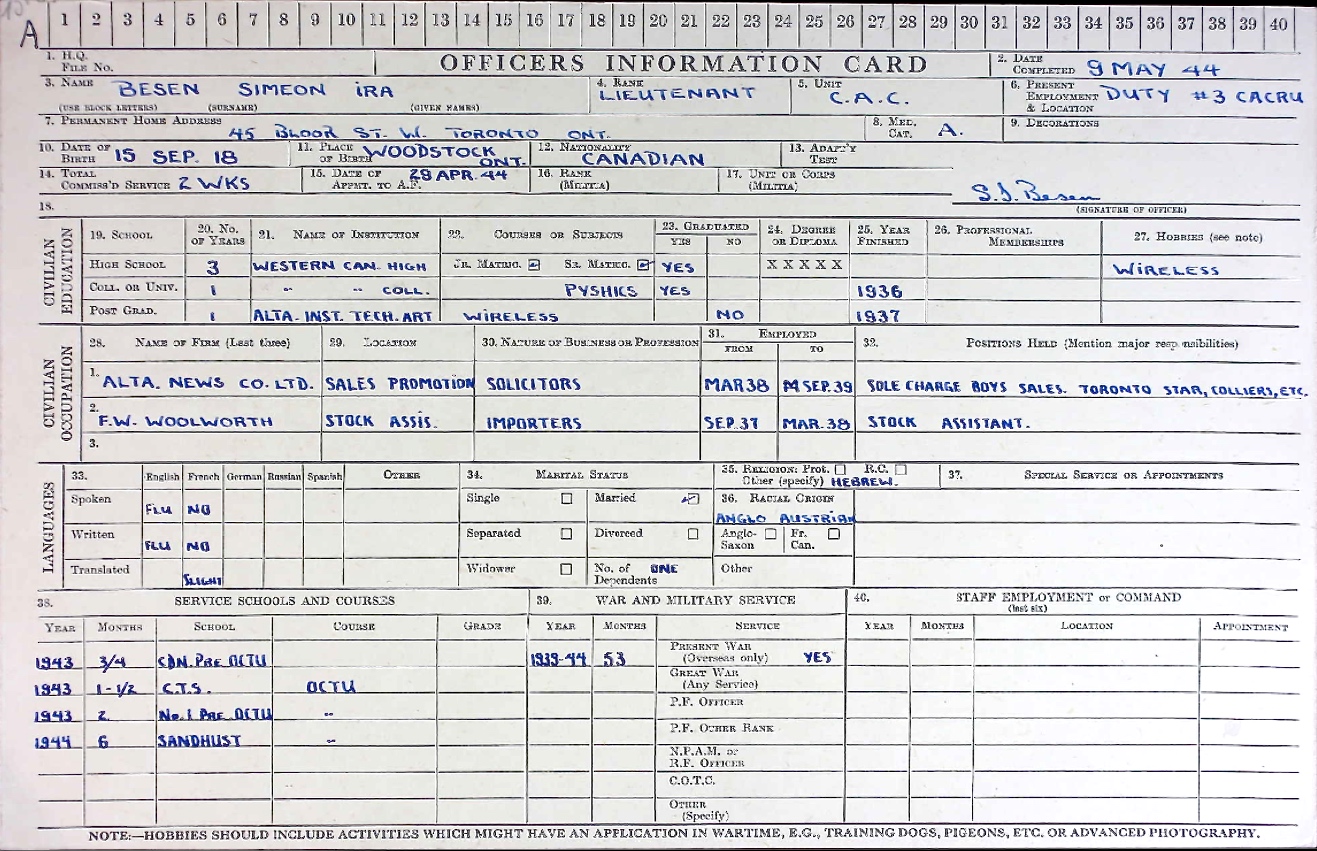 A 1 2 3 4 5 6 7 8 9 10 11 12 13 14 15 16 17 18 19 20 21 22 23 24 25 26 27 28 29 30 31 32 33 34 35 36 37 38 39 40
1. H.Q. FILE NO. OFFICERS INFORMATION CARD 2. DATE COMPLETED 9 MAY 44
3. NAME BESEN SIMEON IRA 4. RANK LIEUTENANT 5. UNIT C.A.C. 6. PRESENT EMPLOYMENT & LOCATION DUTY #3 CACRU
(USE BLOCK LETTERS) (SURNAME) (GIVEN NAMES)
7. PERMANENT HOME ADDRESS 45 BLOOR ST. W. TORONTO ONT. 8. MED. CAT. A. 9. DECORATIONS
10. DATE OF BIRTH 15 SEP. 18 11. PLACE OF BIRTH WOODSTOCK ONT. 12. NATIONALITY CANADIAN 13. ADAPT'Y TEST
14. TOTAL COMMISS'D SERVICE 2 WKS 15. DATE OF APPMT. TO A.F. 28 APR. 44 16. RANK (MILITIA) 17. UNIT OR CORPS (MILITIA) S.I. Besen
18. (SIGNATURE OF OFFICER)
CIVILIAN EDUCATION
19. SCHOOL 20. NO. OF YEARS 21. NAME OF INSTITUTION 22. COURSES OR SUBJECTS 23. GRADUATED YES NO 24. DEGREE OR DIPLOMA 25. YEAR FINISHED 26. PROFESSIONAL MEMBERSHIPS 27. HOBBIES (see note)
HIGH SCHOOL 3 WESTERN CAN. HIGH JR. MATRIC. SR. MATRIC. YES X X X X X WIRELESS
COLL. OR UNIV. 1 " " COLL. PYSHICS YES 1936
POST GRAD. 1 ALTA. INST. TECH. ART WIRELESS NO 1937
CIVILIAN OCCUPATION
28. NAME OF FIRM (Last three) 29. LOCATION 30. NATURE OF BUSINESS OR PROFESSION 31. EMPLOYED FROM TO 32. POSITIONS HELD (Mention major responsibilities)
1. ALTA. NEWS CO. LTD. SALES PROMOTION SOLICITORS MAR 38 SEP. 39 SOLE CHARGE BOYS SALES. TORONTO STAR, COLLIERS, ETC.
2. F.W. WOOLWORTH STOCK ASSIS. IMPORTERS SEP. 37 MAR. 38 STOCK ASSISTANT.
3.
LANGUAGES
33. English French German Russian Spanish OTHER 34. MARITAL STATUS 35. RELIGION: Prot. R.C. Other (specify) HEBREW. 37. SPECIAL SERVICE OR APPOINTMENTS
Spoken FLU NO Single Married 36. RACIAL ORIGIN ANGLO AUSTRIAN
Written FLU NO Separated Divorced Anglo-Saxon Fr. Can.
Translated SLIGHT Widower No. of Dependents ONE Other
38. SERVICE SCHOOLS AND COURSES 39. WAR AND MILITARY SERVICE 40. STAFF EMPLOYMENT or COMMAND (last six)
YEAR MONTHS SCHOOL COURSE GRADE YEAR MONTHS SERVICE YEAR MONTHS LOCATION APPOINTMENT
1943 3/4 CDN. PRE OCTU 1939-44 53 PRESENT WAR (Overseas only) YES
1943 1-1/2 C.T.S. OCTU GREAT WAR (Any Service)
1943 2 No. 1 PRE OCTU " P.F. OFFICER
1944 6 SANDHUST " P.F. OTHER RANK
N.P.A.M. or R.F. OFFICER
C.O.T.C.
OTHER (Specify)
NOTE:—HOBBIES SHOULD INCLUDE ACTIVITIES WHICH MIGHT HAVE AN APPLICATION IN WARTIME, E.G., TRAINING DOGS, PIGEONS, ETC. OR ADVANCED PHOTOGRAPHY.